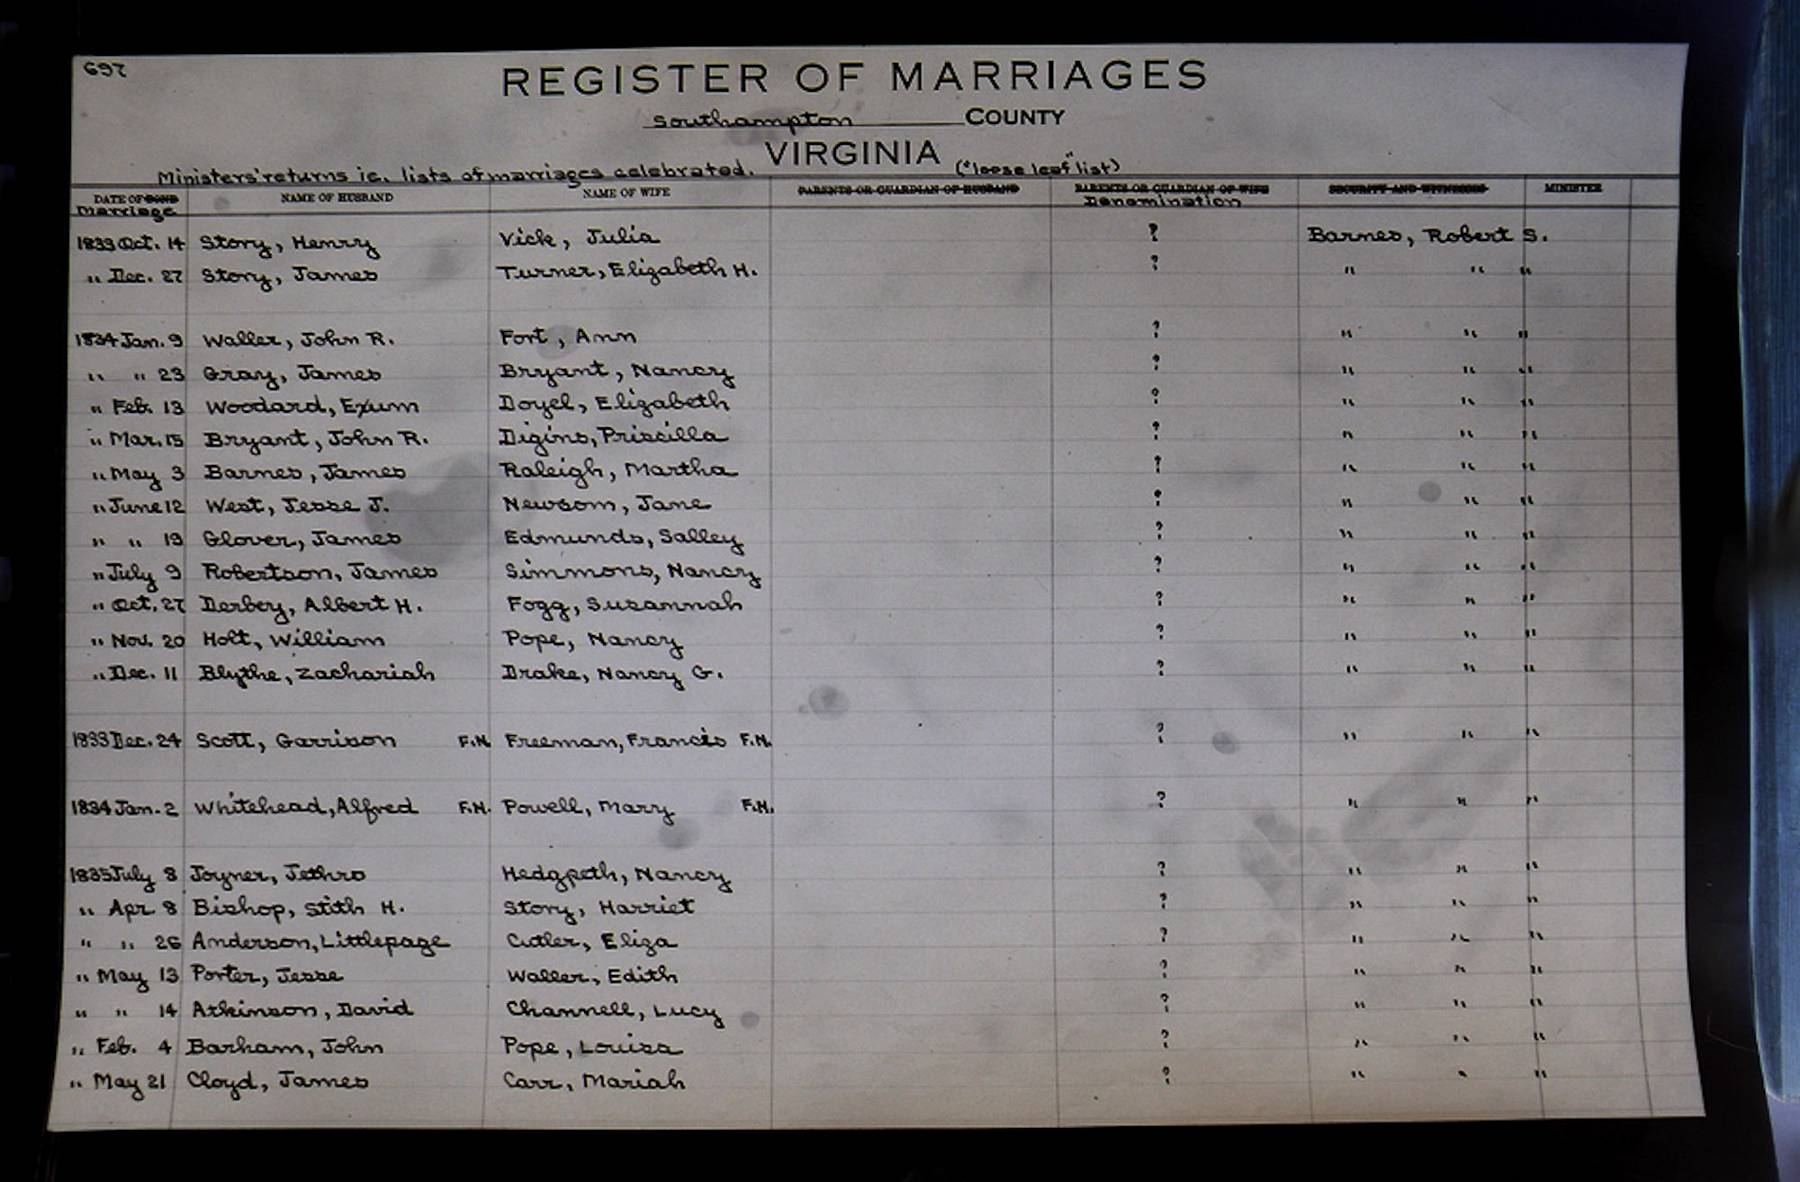 697
REGISTER OF MARRIAGES
Southampton COUNTY
VIRGINIA
Ministers' returns ie. lists of marriages celebrated. ("loose leaf" list)
DATE OF BOND NAME OF HUSBAND NAME OF WIFE PARENTS OR GUARDIAN OF HUSBAND PARENTS OR GUARDIAN OF WIFE SECURITY AND WITNESSES MINISTER
Marriage Denomination
1833 Oct. 14 Story, Henry Vick, Julia ? Barnes, Robert S.
" Dec. 27 Story, James Turner, Elizabeth H. ? " " "
1834 Jan. 9 Waller, John R. Fort, Ann ? " " "
" " 23 Gray, James Bryant, Nancy ? " " "
" Feb. 13 Woodard, Exum Doyel, Elizabeth ? " " "
" Mar. 15 Bryant, John R. Digins, Priscilla ? " " "
" May 3 Barnes, James Raleigh, Martha ? " " "
" June 12 West, Jesse J. Newsom, Jane ? " " "
" " 19 Glover, James Edmunds, Salley ? " " "
" July 9 Robertson, James Simmons, Nancy ? " " "
" Oct. 27 Derbey, Albert H. Fogg, Susannah ? " " "
" Nov. 20 Holt, William Pope, Nancy ? " " "
" Dec. 11 Blythe, Zachariah Drake, Nancy G. ? " " "
1833 Dec. 24 Scott, Garrison F.N. Freeman, Francis F.N. ? " " "
1834 Jan. 2 Whitehead, Alfred F.N. Powell, Mary F.N. ? " " "
1835 July 8 Joyner, Jethro Hedgpeth, Nancy ? " " "
" Apr. 8 Bishop, Stith H. Story, Harriet ? " " "
" " 26 Anderson, Littlepage Cutler, Eliza ? " " "
" May 13 Porter, Jesse Waller, Edith ? " " "
" " 14 Atkinson, David Channell, Lucy ? " " "
" Feb. 4 Barham, John Pope, Louisa ? " " "
" May 21 Cloyd, James Carr, Mariah ? " " "